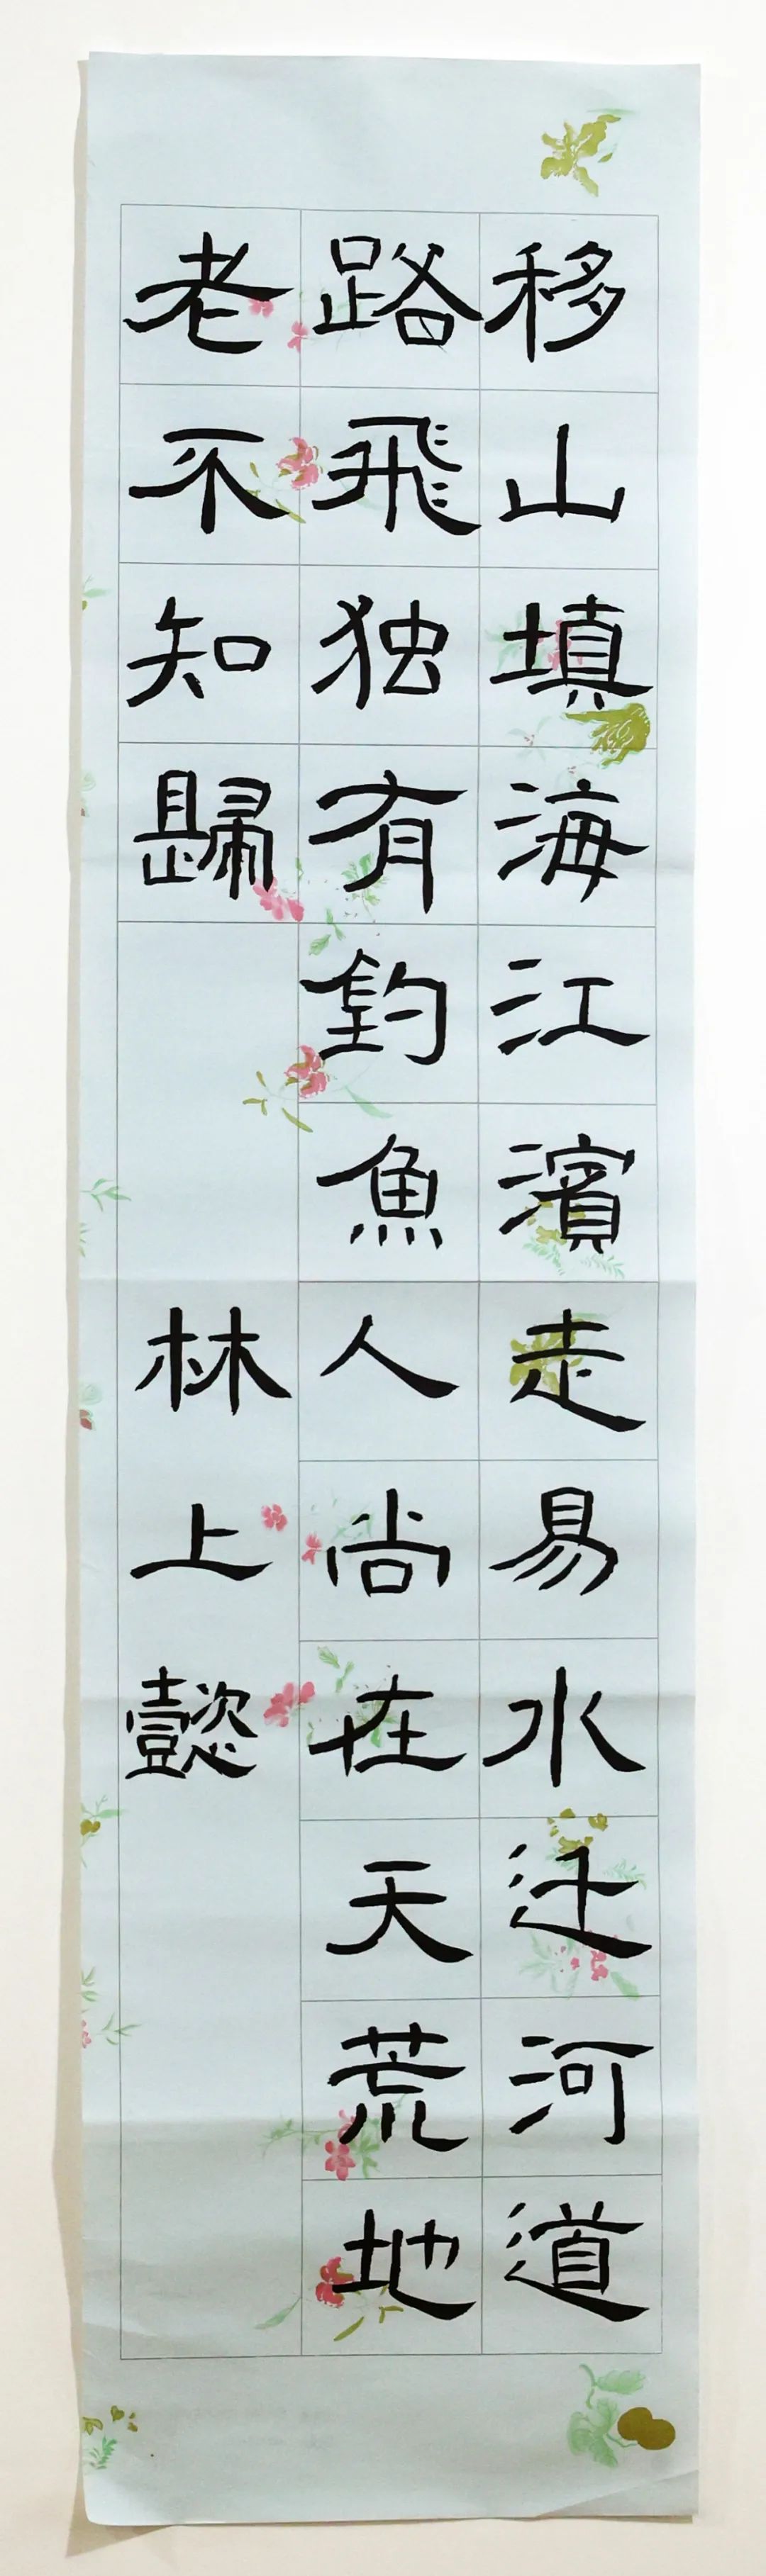 移山填海江濱走易水迁河道
路飛独有釣魚人尚在天荒地
老不知歸 林上懿